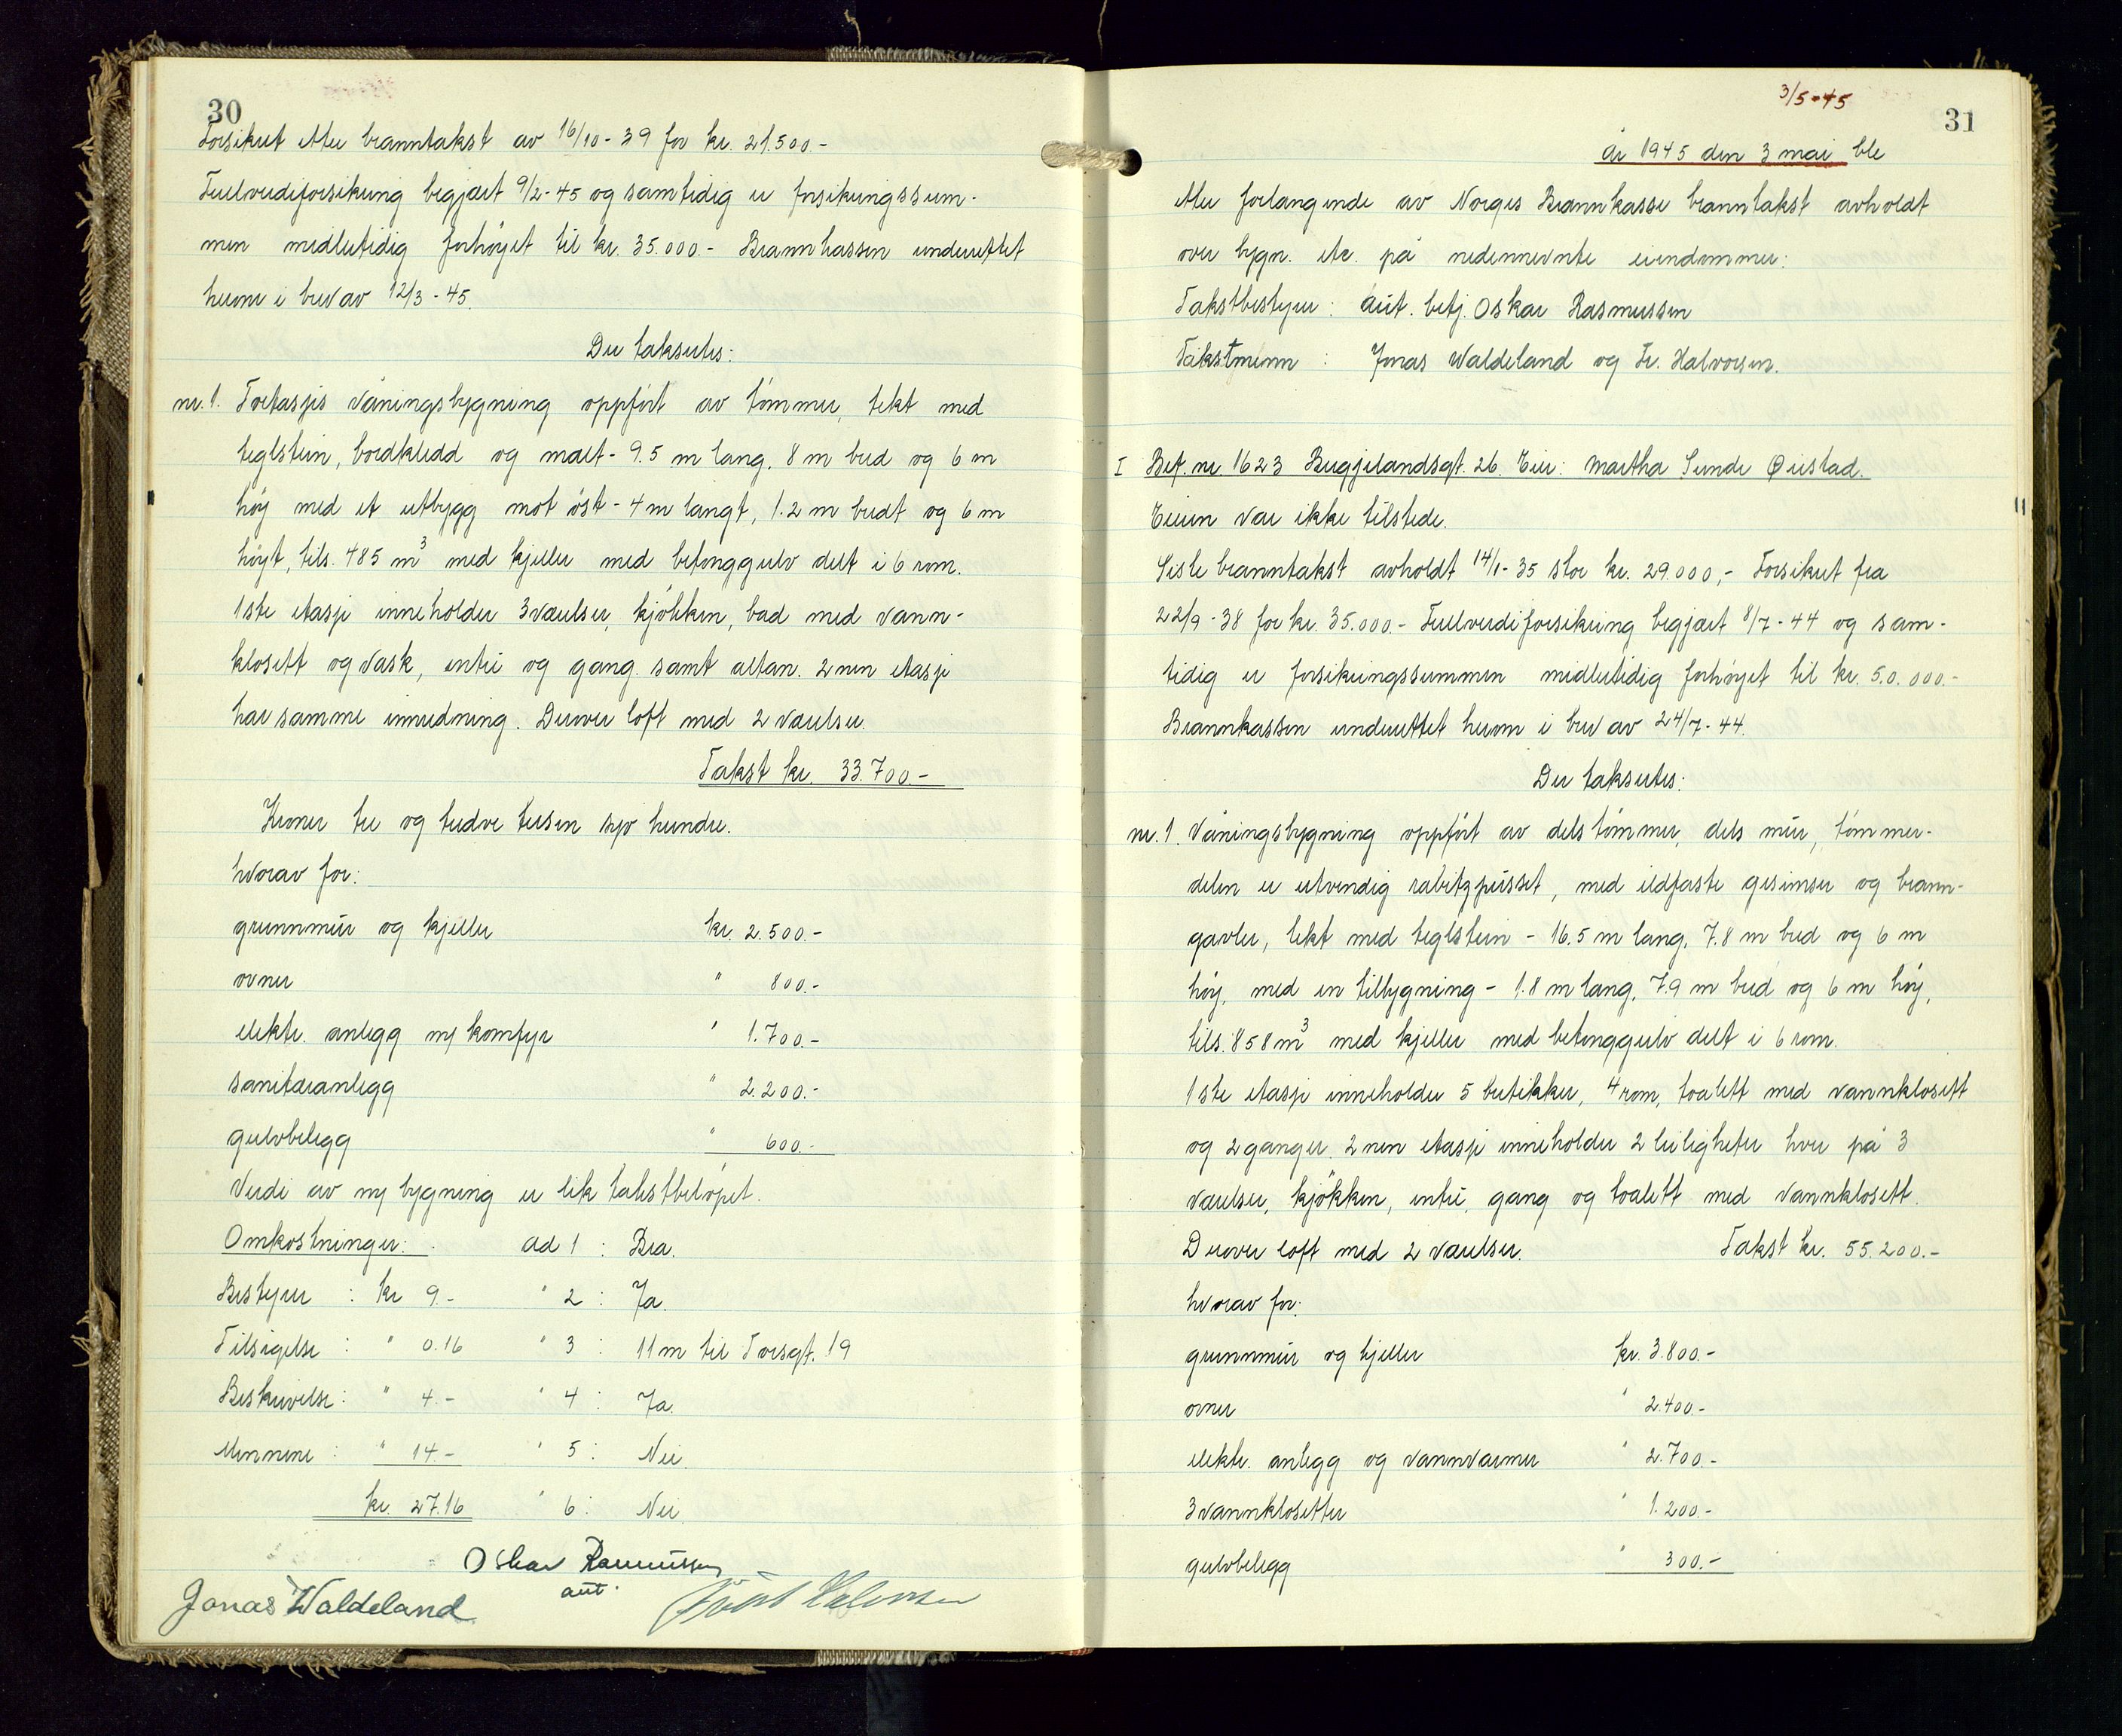 30
Forsikret etter branntakst av 16/10-39 for kr. 21.500.-
Fullverdiforsikring begjært 9/2-45 og samtidig er forsikringssum-
men midlertidig forhöyet til kr. 35.000.- Brannkassen underrettet
herom i brev av 12/3-45.
Der takseres:
nr. 1. Toetasjes våningsbygning oppført av tømmer, tekt med
teglstein, bordkledd og malt - 9.5 m lang, 8 m bred og 6 m
høy med et utbygg mot öst - 4 m langt, 1.2 m bredt og 6 m
høyt, tils. 485 m3 med kjeller med betonggulv delt i 6 rom.
1ste etasje inneholder 3 værelser, kjökken, bad med vann-
klosett og vask, entré og gang samt altan. 2nen etasje
har samme innredning. Derover loft med 2 værelser.
Takst kr. 33.700.-
Kroner tre og tredve tusen syv hundre.
hvorav for:
grunnmur og kjeller kr. 2.500.-
ovner " 800.-
elektr. anlegg m/ komfyr " 1.700.-
sanitæranlegg " 2.200.-
gulvbelegg " 600.-
Verdi av ny bygning er lik takstbelöpet.
Omkostninger: ad 1 : Bra.
Bestyrer : kr 9.- " 2 : Ja.
Tilsigelse : " 0.16 " 3 : 11 m til Torsgt. 19
Beskrivelse : " 4.- " 4 : Ja.
Mennene : " 14.- " 5 : Nei.
kr. 27.16 " 6 : Nei.
Oskar Rasmussen
aut.
Jonas Waldeland Halvorsen
3/5-45
31
År 1945 den 3 mai ble
etter forlangende av Norges Brannkasse branntakst avholdt
over bygn. etc. på nedennevnte eiendommer:
Takstbestyrer : aut. betj. Oskar Rasmussen
Takstmenn : Jonas Waldeland og Fr. Halvorsen.
I Bef. nr. 1623 Bergjelandsgt. 26. Eier: Martha Sunde Øristad.
Eieren var ikke tilstede.
Siste branntakst avholdt 14/1-35 stor kr. 29.000,- Forsikret fra
22/9-38 for kr. 35.000.- Fullverdiforsikring begjært 8/7-44 og sam-
tidig er forsikringssummen midlertidig forhöyet til kr. 50.000.-
Brannkassen underrettet herom i brev av 24/7-44.
Der takseres:
nr. 1. Våningsbygning oppfört av dels tömmer, dels mur, tömmer-
delen er utvendig rabitzpusset, med ildfaste gesimser og brann-
gavler, tekt med teglstein - 16.5 m lang, 7.8 m bred og 6 m
höy, med en tilbygning - 1.8 m lang, 7.9 m bred og 6 m höy,
tils. 858 m3 med kjeller med betonggulv delt i 6 rom.
1ste etasje inneholder 5 butikker, 4 rom, toalett med vannklosett
og 2 ganger. 2nen etasje inneholder 2 leiligheter hver på 3
værelser, kjökken, entré, gang og toalett med vannklosett.
Derover loft med 2 værelser. Takst kr. 55.200.-
hvorav for:
grunnmur og kjeller kr. 3.800.-
ovner " 2.400.-
elektr. anlegg og vannvarmer " 2.700.-
3 vannklosetter " 1.200.-
gulvbelegg " 300.-